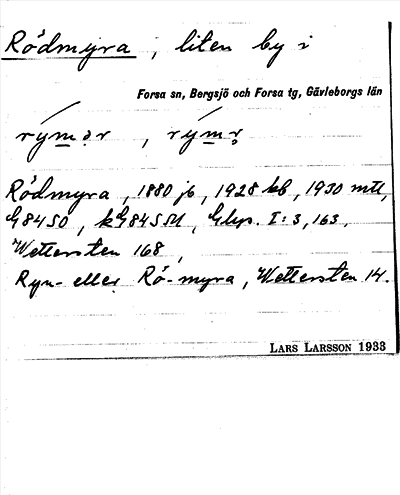 Rödmyra, liten by i
Forsa sn, Bergsjö och Forsa tg, Gävleborgs län
Rödmyra, 1880 jb, 1928 kb, 1930 mtl,
G84SO, kG84SSU, Glyp. I:3, 163,
Wettersten 168,
Ryn- eller Rö-myra, Wettersten 14.
LARS LARSSON 1933